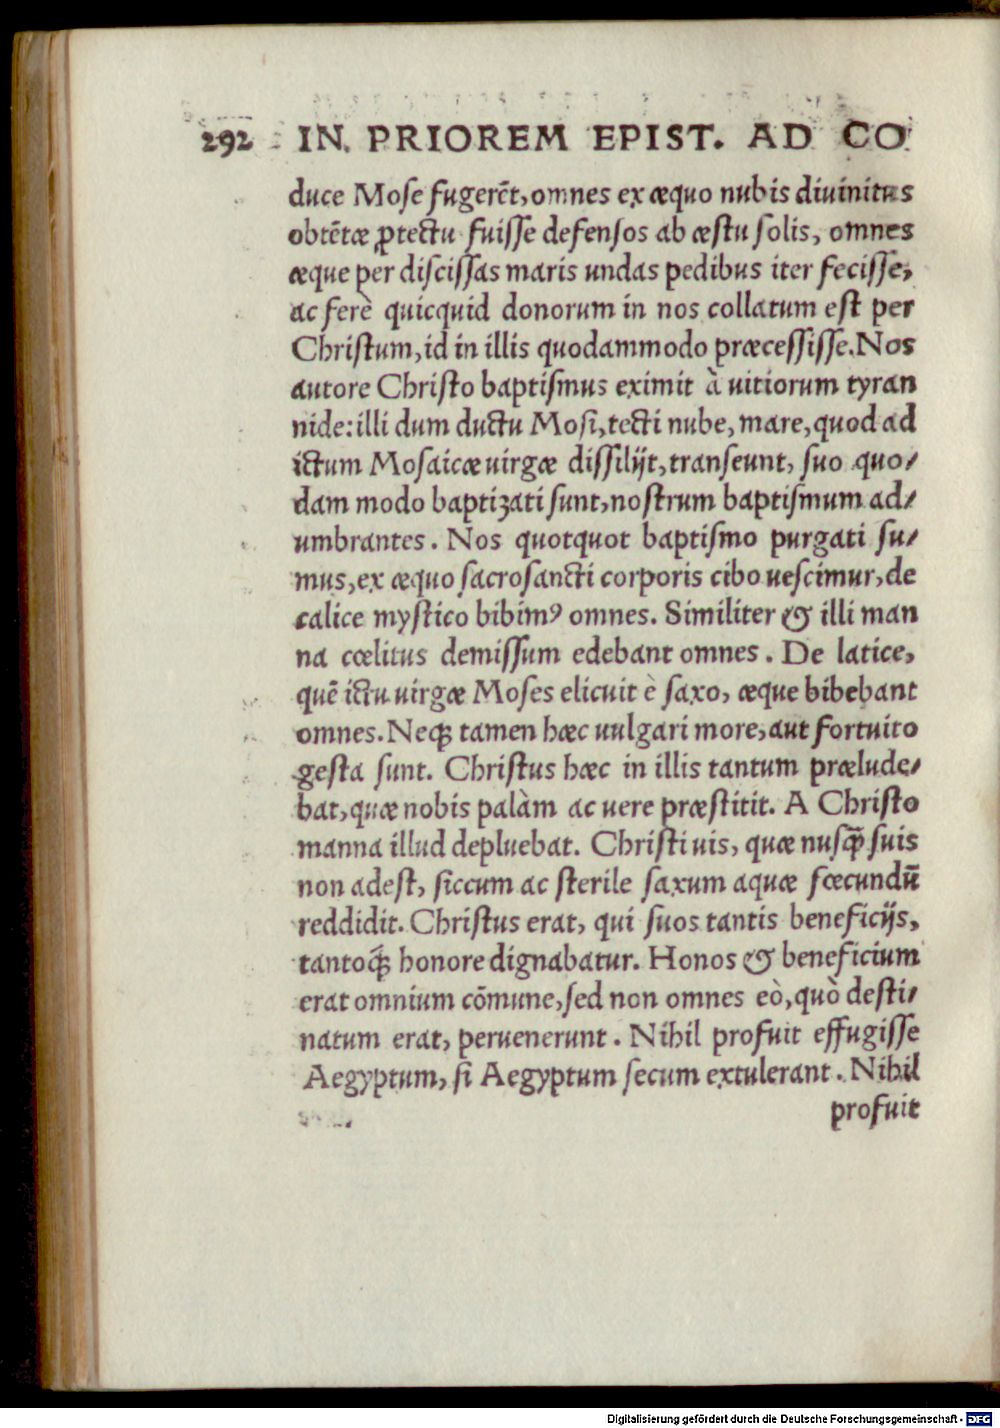 292 IN PRIOREM EPIST. AD CO
duce Mose fugerēt, omnes ex æquo nubis diuinitus
obtētæ ꝓtectu fuisse defensos ab æstu solis, omnes
æque per discissas maris undas pedibus iter fecisse,
ac ferè quicquid donorum in nos collatum est per
Christum, id in illis quodammodo præcessisse. Nos
autore Christo baptismus eximit à uitiorum tyran
nide: illi dum ductu Mosi, tecti nube, mare, quod ad
ictum Mosaicæ uirgæ dissilijt, transeunt, suo quo/
dam modo baptizati sunt, nostrum baptismum ad/
umbrantes. Nos quotquot baptismo purgati su/
mus, ex æquo sacrosancti corporis cibo uescimur, de
calice mystico bibimꝰ omnes. Similiter & illi man
na cœlitus demissum edebant omnes. De latice,
quē ictu uirgæ Moses elicuit è saxo, æque bibebant
omnes. Neqꝫ tamen hæc uulgari more, aut fortuito
gesta sunt. Christus hæc in illis tantum prælude/
bat, quæ nobis palàm ac uere præstitit. A Christo
manna illud depluebat. Christi uis, quæ nusq̃ suis
non adest, siccum ac sterile saxum aquæ fœcundū
reddidit. Christus erat, qui suos tantis beneficijs,
tantoq́ꝫ honore dignabatur. Honos & beneficium
erat omnium cōmune, sed non omnes eò, quò desti/
natum erat, peruenerunt. Nihil profuit effugisse
Aegyptum, si Aegyptum secum extulerant. Nihil
profuit
Digitalisierung gefördert durch die Deutsche Forschungsgemeinschaft - DFG